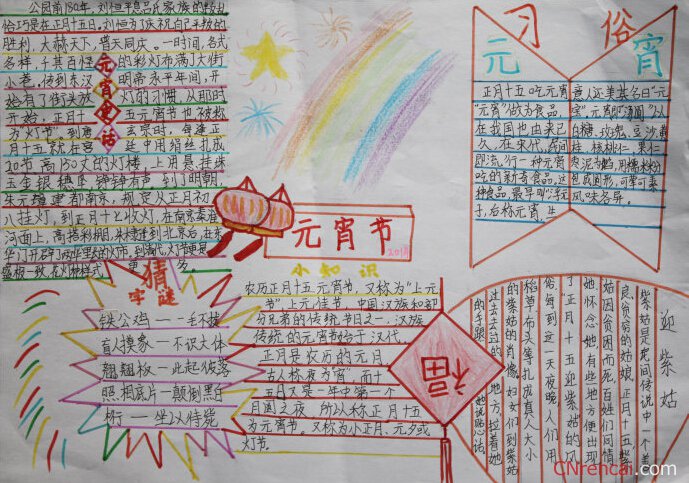 公园前180年,刘恒平息吕氏家族的
恰巧是在正月十五日。刘恒为了庆祝自己平叛的
胜利,大赦天下,普天同庆。一时间,各式
各样,千其百怪的彩灯布满了大街
小巷。传到东汉明帝永平年间,开
始有了街头放灯的习惯,从那时
开始,正月十五元宵节也被称
为"灯节"。到唐玄宗时,每逢正
月十五就在宫中用绢丝扎成
20节高150丈的灯楼,上用悬挂珠
玉金银穗
朱元璋建都南京,规定从正月初
八挂灯,到正月十七收灯,在南京秦淮
河面上,高搭彩棚
元宵史话
习俗
元宵
正月十五吃元宵
"元宵"做为食品
在我国也由来已
久。在宋代,民间
即流行一种元宵
吃的新奇食品。这
种食品,最早叫"浮
子,后称元宵,生
意人还美其名曰"元
宝"。元宵即"汤圆"以
白糖、玫瑰、豆沙、黄
桂、核桃仁、果仁
用糯米粉
包成圆形,可荤可素
风味各异。
元宵节
2018
小知识
农历正月十五元宵节,又称为"上元
节",上元佳节,中国汉族和部
分兄弟的传统节日之一,汉族
传统的元宵节始于汉代。
正月是农历的元月
古人称夜为宵,而十
五日又是一年中第一个
月圆之夜,所以称正月十五
为元宵节。又称为小正月、元夕或
灯节。
福
猜
字谜
铁公鸡——一毛不拔
盲人摸象——不识大体
翘翘板——此起彼落
照相底片——颠倒黑白
桥——坐以待毙
迎紫姑
紫姑是民间传说中一个善
良贫穷的姑娘。正月十五,紫
姑因贫困而死。百姓们同情
她怀念她,有些地方便出现
了正月十五迎紫姑的风
俗。每到这一天夜晚,人们用
稻草布头等扎成真人大小
的紫姑的肖像。妇女们到紫姑
CNrencai.com